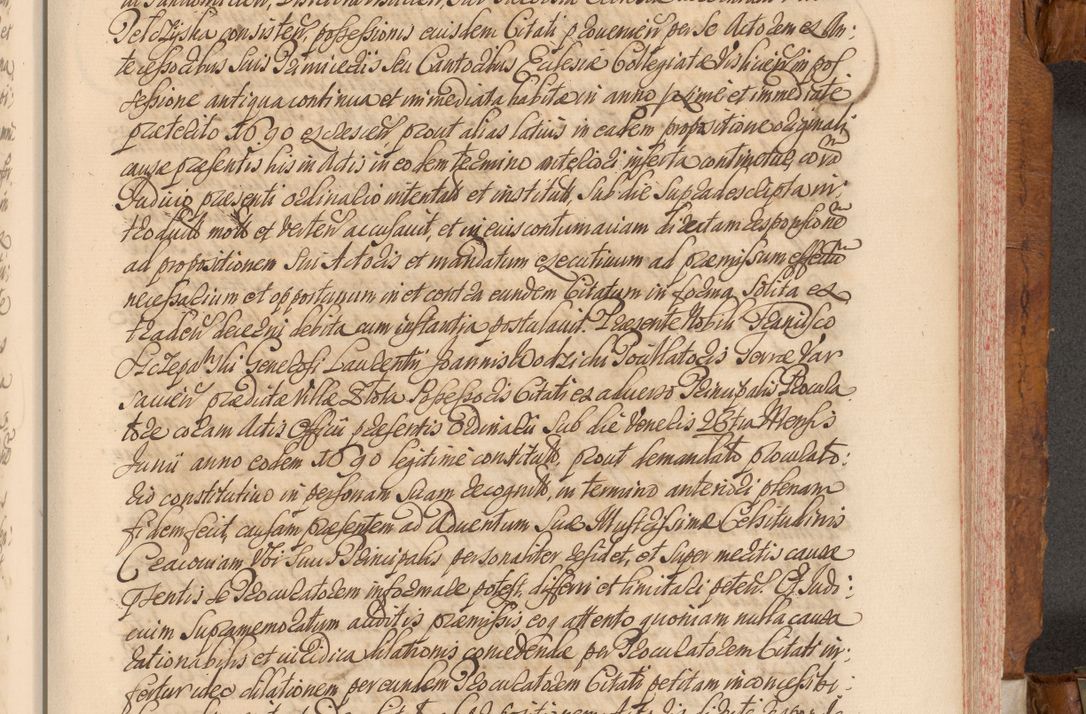 Pelczyska consisteñ, possessionis eiusdem Citati proveniẽ per se Actorem ex An:
tecessoribus suis Vemicediis seu Cantoribus Ecclesiæ Collegiatæ Visliciẽ in pos
sessione antiqua continua et immediata habita in anno proxime et immediate
præterito 1690 ex cresceñ, prout alias latius in eadem propositione originali
causæ præsentis his in Actis in eodem termino anteriori inserta continetur, corã
Judicio præsenti ordinario intentatũ et institutũ, sub die supradescripta in:
troductũ motũ et verteñ accusavit, et in eius contumaciam directam responsionẽ
ad propositionem sui Actoris et mandatum executivum ad præmissum effectũ
necessarium et opportunum in et contra eundem Citatum in forma solita ex:
tradeñ decerni debita cum instantia postulavit. Præsente Nobili Francisco
Szczepański Generosi Laurentii Joannis Wodzicki Poĩllatoris Terræ Var
saviẽ prædictæ Villæ Złota Possessoris Citati ex adverso Principalis Procura
tore coram Actis Officii præsentis Ordinarii sub die Veneris 23tia Mensis
Junii anno eodem 1690 legitime constituto, prout de mandato procurato:
rio constitutivo in personam suam recognito, in termino anteriori plenam
fidem fecit, causam præsentem ad Adventum Suæ Illustrissimæ Celsitudinis
Cracoviam Ubi suus Principalis personaliter residet, et super meritis causæ
pñentis se Procuratorem informare potest, differri et limitari peteñ. Et Judi:
cium supramemoratum auditis præmissis eoq̃ attento quoniam nulla causa
rationabilis et iuridica dilationis concedendæ per Procuratorem Citati in:
fertur ideo dilationem per eundem Procuratorem Citati petitam inconcessibi: